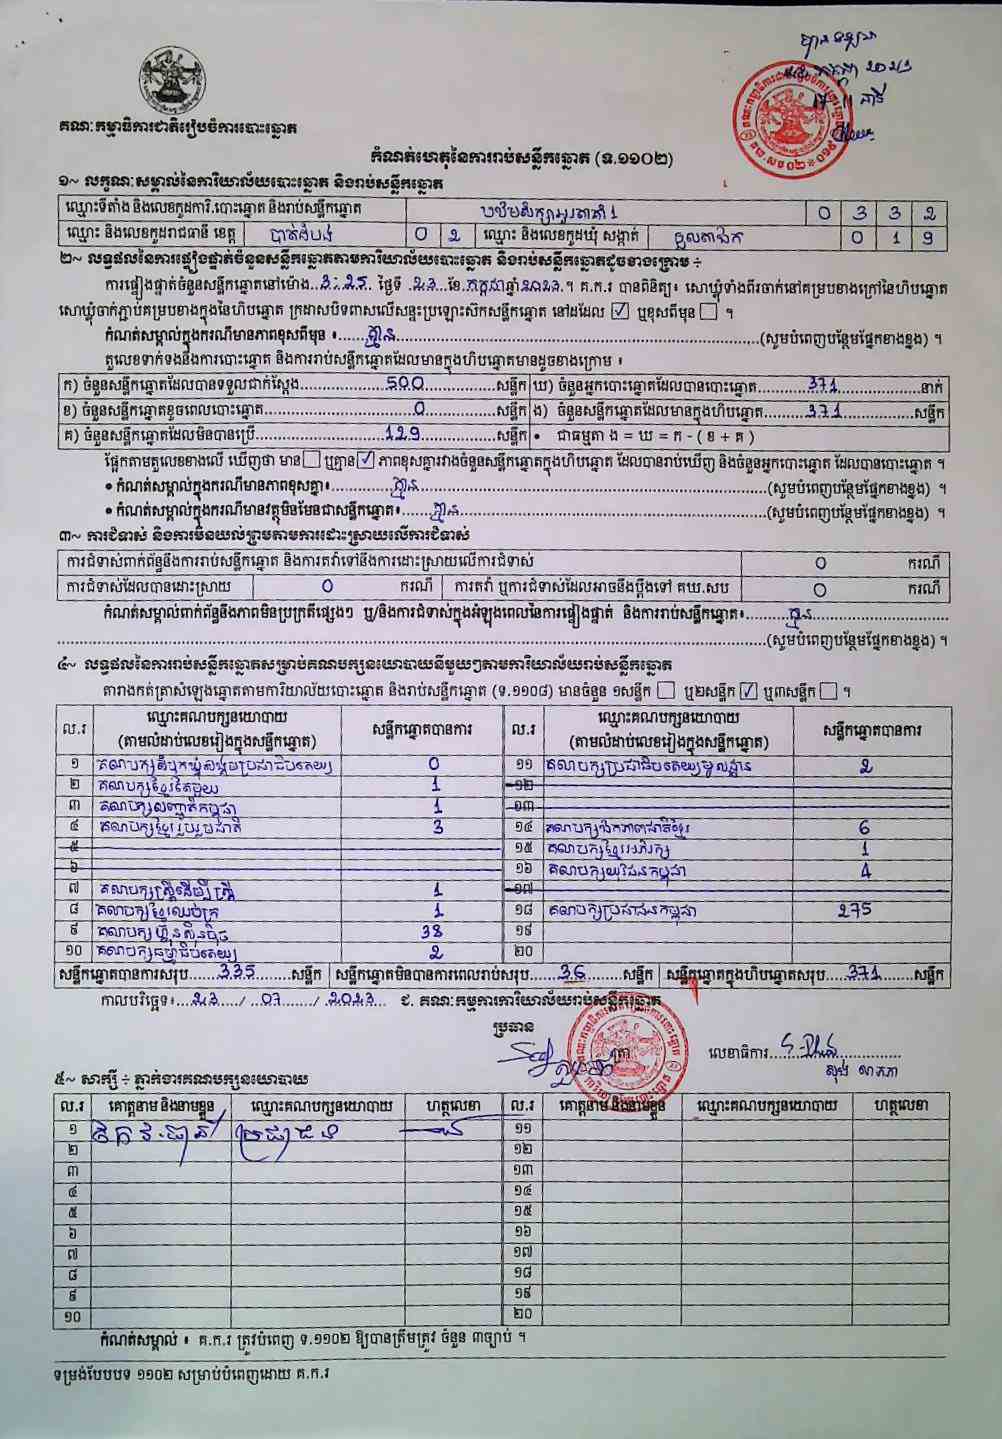 គណៈកម្មាធិការជាតិរៀបចំការបោះឆ្នោត
កំណត់ហេតុនៃការរាប់សន្លឹកឆ្នោត (ទ.១១០២)
១~ លក្ខណៈសម្គាល់នៃការិយាល័យបោះឆ្នោត និងរាប់សន្លឹកឆ្នោត
ឈ្មោះទីតាំង និងលេខកូដការិ.បោះឆ្នោត និងរាប់សន្លឹកឆ្នោត 0 3 3 2
ឈ្មោះ និងលេខកូដរាជធានី ខេត្ត បាត់ដំបង 0 2 ឈ្មោះ និងលេខកូដឃុំ សង្កាត់ ទួលតាឯក 0 1 9
២~ លទ្ធផលនៃការផ្ទៀងផ្ទាត់ចំនួនសន្លឹកឆ្នោតតាមការិយាល័យបោះឆ្នោត និងរាប់សន្លឹកឆ្នោតដូចខាងក្រោម ÷
ការផ្ទៀងផ្ទាត់ចំនួនសន្លឹកឆ្នោតនៅម៉ោង..3:25 ថ្ងៃទី .23..ខែ.កក្កដាឆ្នាំ2023.។ គ.ក.រ បានពិនិត្យ៖ សោឃ្លុំទាំងពីរចាក់នៅគម្របខាងក្រៅនៃហិបឆ្នោត
សោឃ្លុំចាក់ភ្ជាប់គម្របខាងក្នុងនៃហិបឆ្នោត ក្រដាសបិទពាសលើសន្ទះប្រឡោះស៊កសន្លឹកឆ្នោត នៅដដែល ☑ ឬខុសពីមុន ☐ ។
កំណត់សម្គាល់ក្នុងករណីមានភាពខុសពីមុន ៖......គ្មាន......(សូមបំពេញបន្ថែមផ្នែកខាងខ្នង) ។
តួលេខទាក់ទងនឹងការបោះឆ្នោត និងការរាប់សន្លឹកឆ្នោតដែលមានក្នុងហិបឆ្នោតមានដូចខាងក្រោម ៖
ក) ចំនួនសន្លឹកឆ្នោតដែលបានទទួលជាក់ស្តែង......500......សន្លឹក ឃ) ចំនួនអ្នកបោះឆ្នោតដែលបានបោះឆ្នោត......371......នាក់
ខ) ចំនួនសន្លឹកឆ្នោតខូចពេលបោះឆ្នោត......0......សន្លឹក ង) ចំនួនសន្លឹកឆ្នោតដែលមានក្នុងហិបឆ្នោត......371......សន្លឹក
គ) ចំនួនសន្លឹកឆ្នោតដែលមិនបានប្រើ......129......សន្លឹក • ជាធម្មតា ង = ឃ = ក - ( ខ + គ )
ផ្អែកតាមតួលេខខាងលើ ឃើញថា មាន☐ ឬគ្មាន☑ ភាពខុសគ្នារវាងចំនួនសន្លឹកឆ្នោតក្នុងហិបឆ្នោត ដែលបានរាប់ឃើញ និងចំនួនអ្នកបោះឆ្នោត ដែលបានបោះឆ្នោត ។
• កំណត់សម្គាល់ក្នុងករណីមានភាពខុសគ្នា៖......គ្មាន......(សូមបំពេញបន្ថែមផ្នែកខាងខ្នង) ។
• កំណត់សម្គាល់ក្នុងករណីមានវត្ថុមិនមែនជាសន្លឹកឆ្នោត៖......គ្មាន......(សូមបំពេញបន្ថែមផ្នែកខាងខ្នង) ។
៣~ ការជំទាស់ និងការមិនយល់ព្រមតាមការដោះស្រាយលើការជំទាស់
ការជំទាស់ពាក់ព័ន្ធនឹងការរាប់សន្លឹកឆ្នោត និងការតវ៉ាទៅនឹងការដោះស្រាយលើការជំទាស់ 0 ករណី
ការជំទាស់ដែលបានដោះស្រាយ 0 ករណី ការតវ៉ា ឬការជំទាស់ដែលអាចនឹងប្តឹងទៅ គឃ.សប 0 ករណី
កំណត់សម្គាល់ពាក់ព័ន្ធនឹងភាពមិនប្រក្រតីផ្សេងៗ ឬ/និងការជំទាស់ក្នុងអំឡុងពេលនៃការផ្ទៀងផ្ទាត់ និងការរាប់សន្លឹកឆ្នោត៖......គ្មាន......
......(សូមបំពេញបន្ថែមផ្នែកខាងខ្នង) ។
៤~ លទ្ធផលនៃការរាប់សន្លឹកឆ្នោតសម្រាប់គណបក្សនយោបាយនីមួយៗតាមការិយាល័យរាប់សន្លឹកឆ្នោត
តារាងកត់ត្រាសំឡេងឆ្នោតតាមការិយាល័យបោះឆ្នោត និងរាប់សន្លឹកឆ្នោត (ទ.១១០៨) មានចំនួន ១សន្លឹក ☐ ឬ២សន្លឹក ☑ ឬ៣សន្លឹក ☐ ។
ល.រ ឈ្មោះគណបក្សនយោបាយ (តាមលំដាប់លេខរៀងក្នុងសន្លឹកឆ្នោត) សន្លឹកឆ្នោតបានការ ល.រ ឈ្មោះគណបក្សនយោបាយ (តាមលំដាប់លេខរៀងក្នុងសន្លឹកឆ្នោត) សន្លឹកឆ្នោតបានការ
១ គណបក្សសំបុកឃ្មុំសង្គមប្រជាធិបតេយ្យ 0 ១១ គណបក្សប្រជាធិបតេយ្យមូលដ្ឋាន 2
២ គណបក្សខ្មែរតែមួយ 1 ១២
៣ គណបក្សសញ្ជាតិកម្ពុជា 1 ១៣
៤ គណបក្សខ្មែររួបរួមជាតិ 3 ១៤ គណបក្សឯកភាពជាតិខ្មែរ 6
៥ ១៥ គណបក្សខ្មែរអភិរក្ស 1
៦ ១៦ គណបក្សយុវជនកម្ពុជា 4
៧ គណបក្សស្ត្រីដើម្បីស្ត្រី 1 ១៧
៨ គណបក្សខ្មែរឈប់ក្រ 1 ១៨ គណបក្សប្រជាជនកម្ពុជា 275
៩ គណបក្សហ៊្វុនស៊ិនប៉ិច 38 ១៩
១០ គណបក្សធម្មាធិបតេយ្យ 2 ២០
សន្លឹកឆ្នោតបានការសរុប......335......សន្លឹក សន្លឹកឆ្នោតមិនបានការពេលរាប់សរុប......36......សន្លឹក សន្លឹកឆ្នោតក្នុងហិបឆ្នោតសរុប......371......សន្លឹក
កាលបរិច្ឆេទ៖....23..../..07..../..2023... ជ. គណៈកម្មការការិយាល័យរាប់សន្លឹកឆ្នោត
ប្រធាន
ត្រា លេខាធិការ
៥~ សាក្សី ÷ ភ្នាក់ងារគណបក្សនយោបាយ
ល.រ គោត្តនាម និងនាមខ្លួន ឈ្មោះគណបក្សនយោបាយ ហត្ថលេខា ល.រ គោត្តនាម និងនាមខ្លួន ឈ្មោះគណបក្សនយោបាយ ហត្ថលេខា
១ ១១
២ ១២
៣ ១៣
៤ ១៤
៥ ១៥
៦ ១៦
៧ ១៧
៨ ១៨
៩ ១៩
១០ ២០
កំណត់សម្គាល់ ៖ គ.ក.រ ត្រូវបំពេញ ទ.១១០២ ឱ្យបានត្រឹមត្រូវ ចំនួន ៣ច្បាប់ ។
ទម្រង់បែបបទ ១១០២ សម្រាប់បំពេញដោយ គ.ក.រ